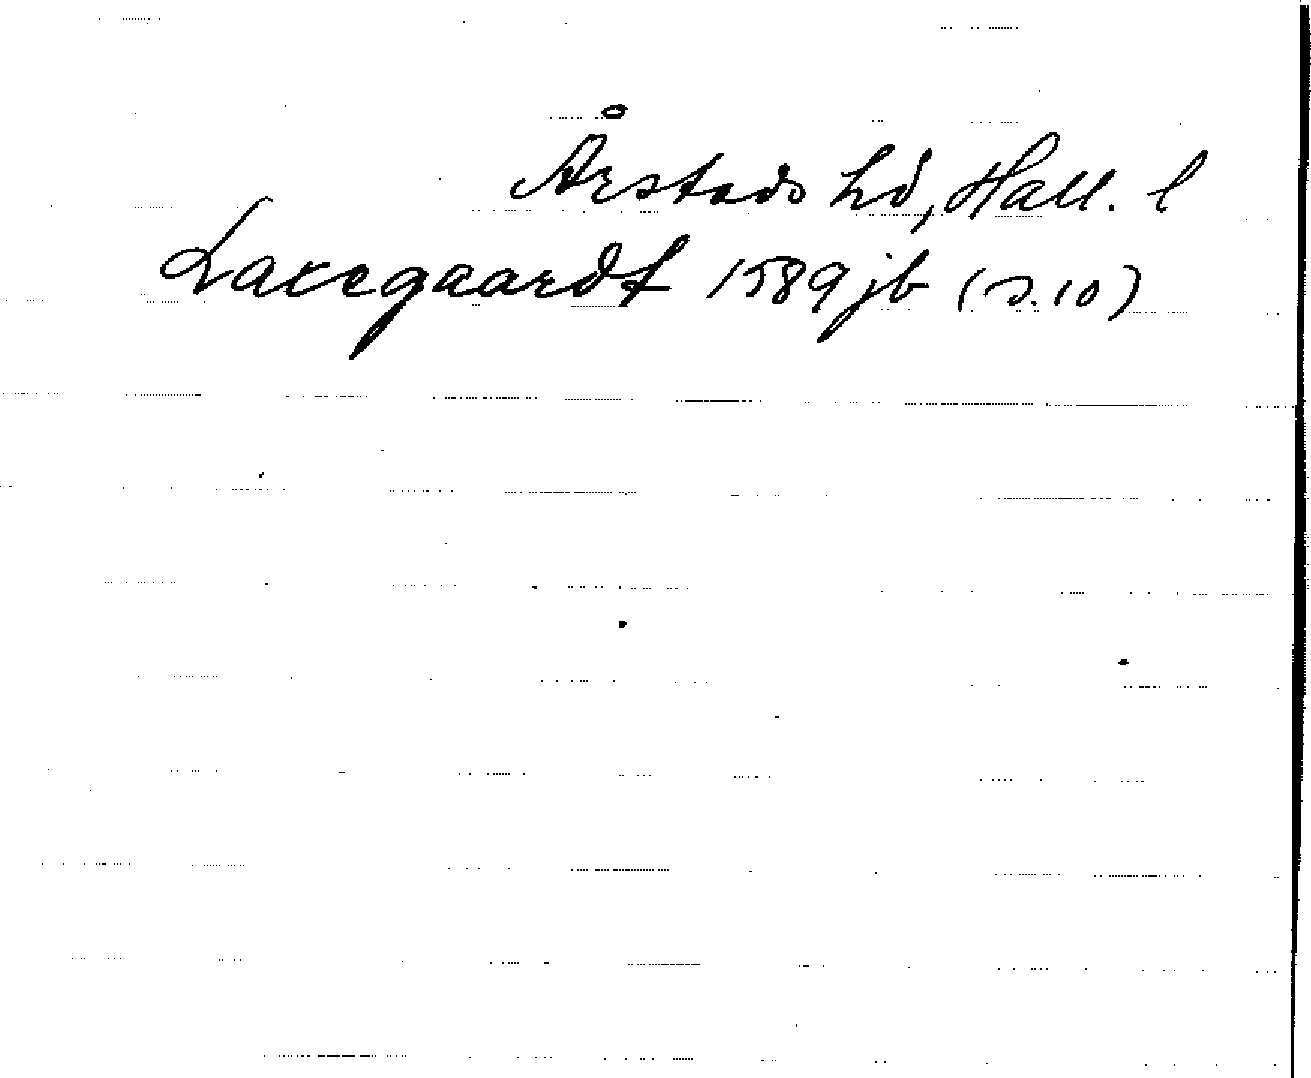 Årstads hd, Hall. l
Laxegaardt 1589 jb (s. 10)